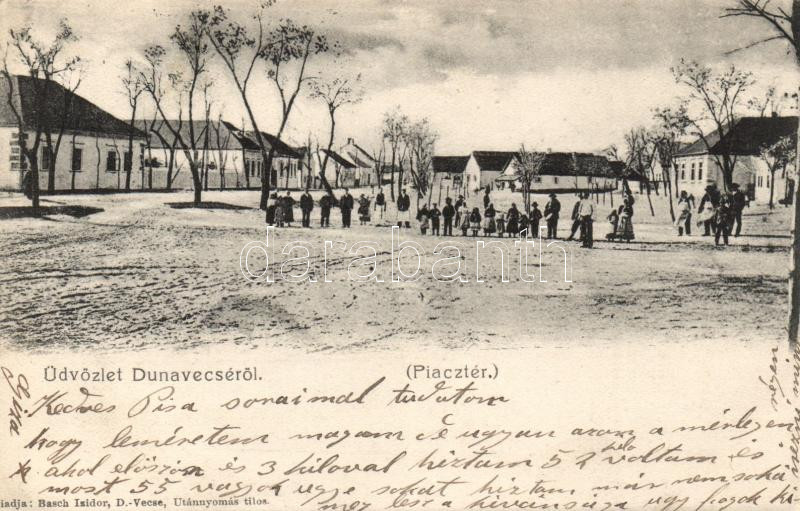 darabanth
Üdvözlet Dunavecséről. (Piacztér.)
Kedves Pisa soraimal tudatom
hogy leméretem magam és ugyan azon a mérlegen
ahol elöször és 3 kilóval híztam 52 kiló voltam és
most 55 vagyok ugye sokat híztam már nem soká
meg lesz a kívánsága úgy fogok ki
nézni mint
Kiadja: Basch Izidor, D.-Vecse, Utánnyomás tilos.